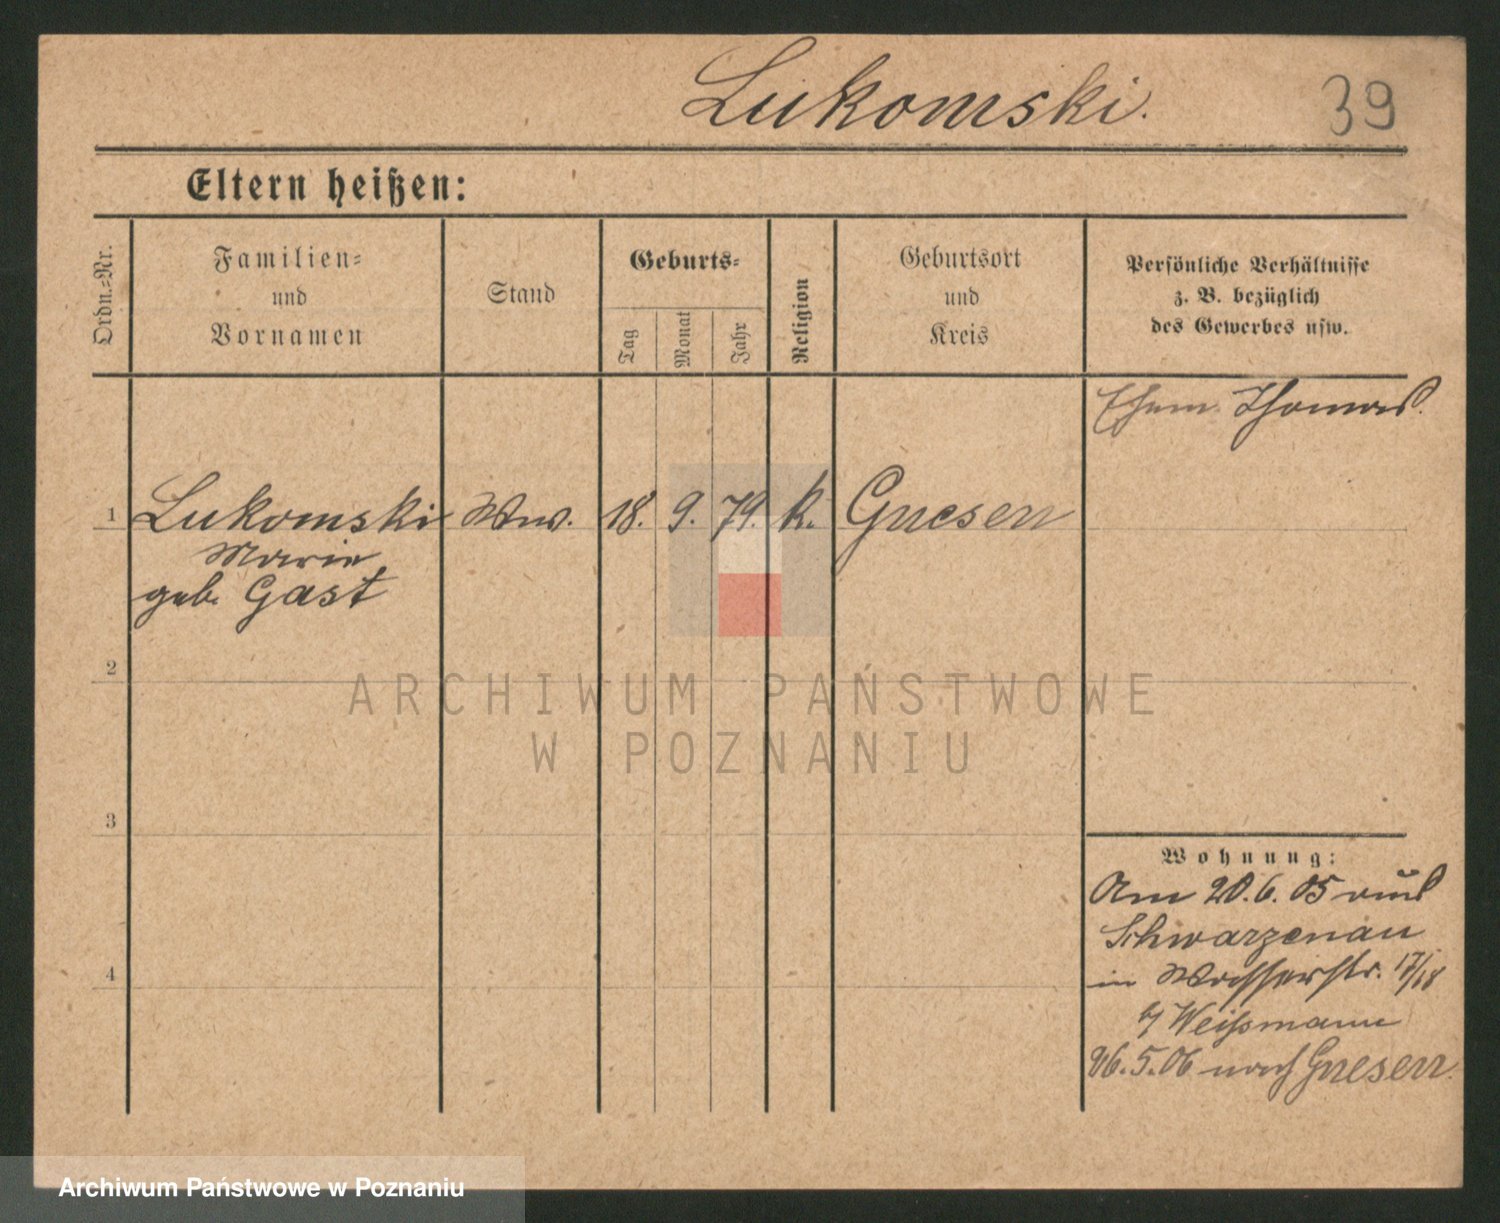 Lukomski.
39
Eltern heißen:
Ordn.-Nr.
Familien-
und
Vornamen
Stand
Geburts-
Tag
Monat
Jahr
Religion
Geburtsort
und
Kreis
Persönliche Verhältnisse
z. B. bezüglich
des Gewerbes usw.
Ehem. Thomas.
1 Lukomski Ww. 18. 9. 79. k. Gnesen
Marie
geb. Gast
2
3
4
Wohnung:
Am 20.6.05 aus
Schwarzenau
in Wasserstr. 17/18
b/ Weißmann
26.5.06 nach Gnesen.
ARCHIWUM PAŃSTWOWE
W POZNANIU
Archiwum Państwowe w Poznaniu